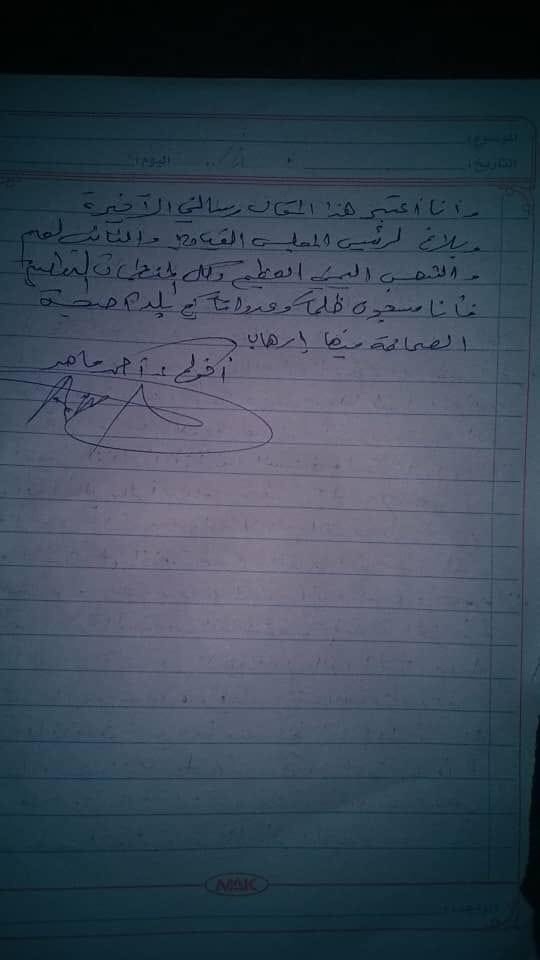 الموضوع:
التاريخ: / / ٢٠ اليوم:
وأنا أعتبر هذا المقال رسالتي الأخيرة
وبلاغ لرئيس المجلس القيادي والنائب العام
والشعب اليمني العظيم وكل المنظمات
فأنا مسجون ظلماً وعدواناً في بلد أصبحت
الصحافة فيها إرهاب
أخوكم: أحمد ماهر
MAK